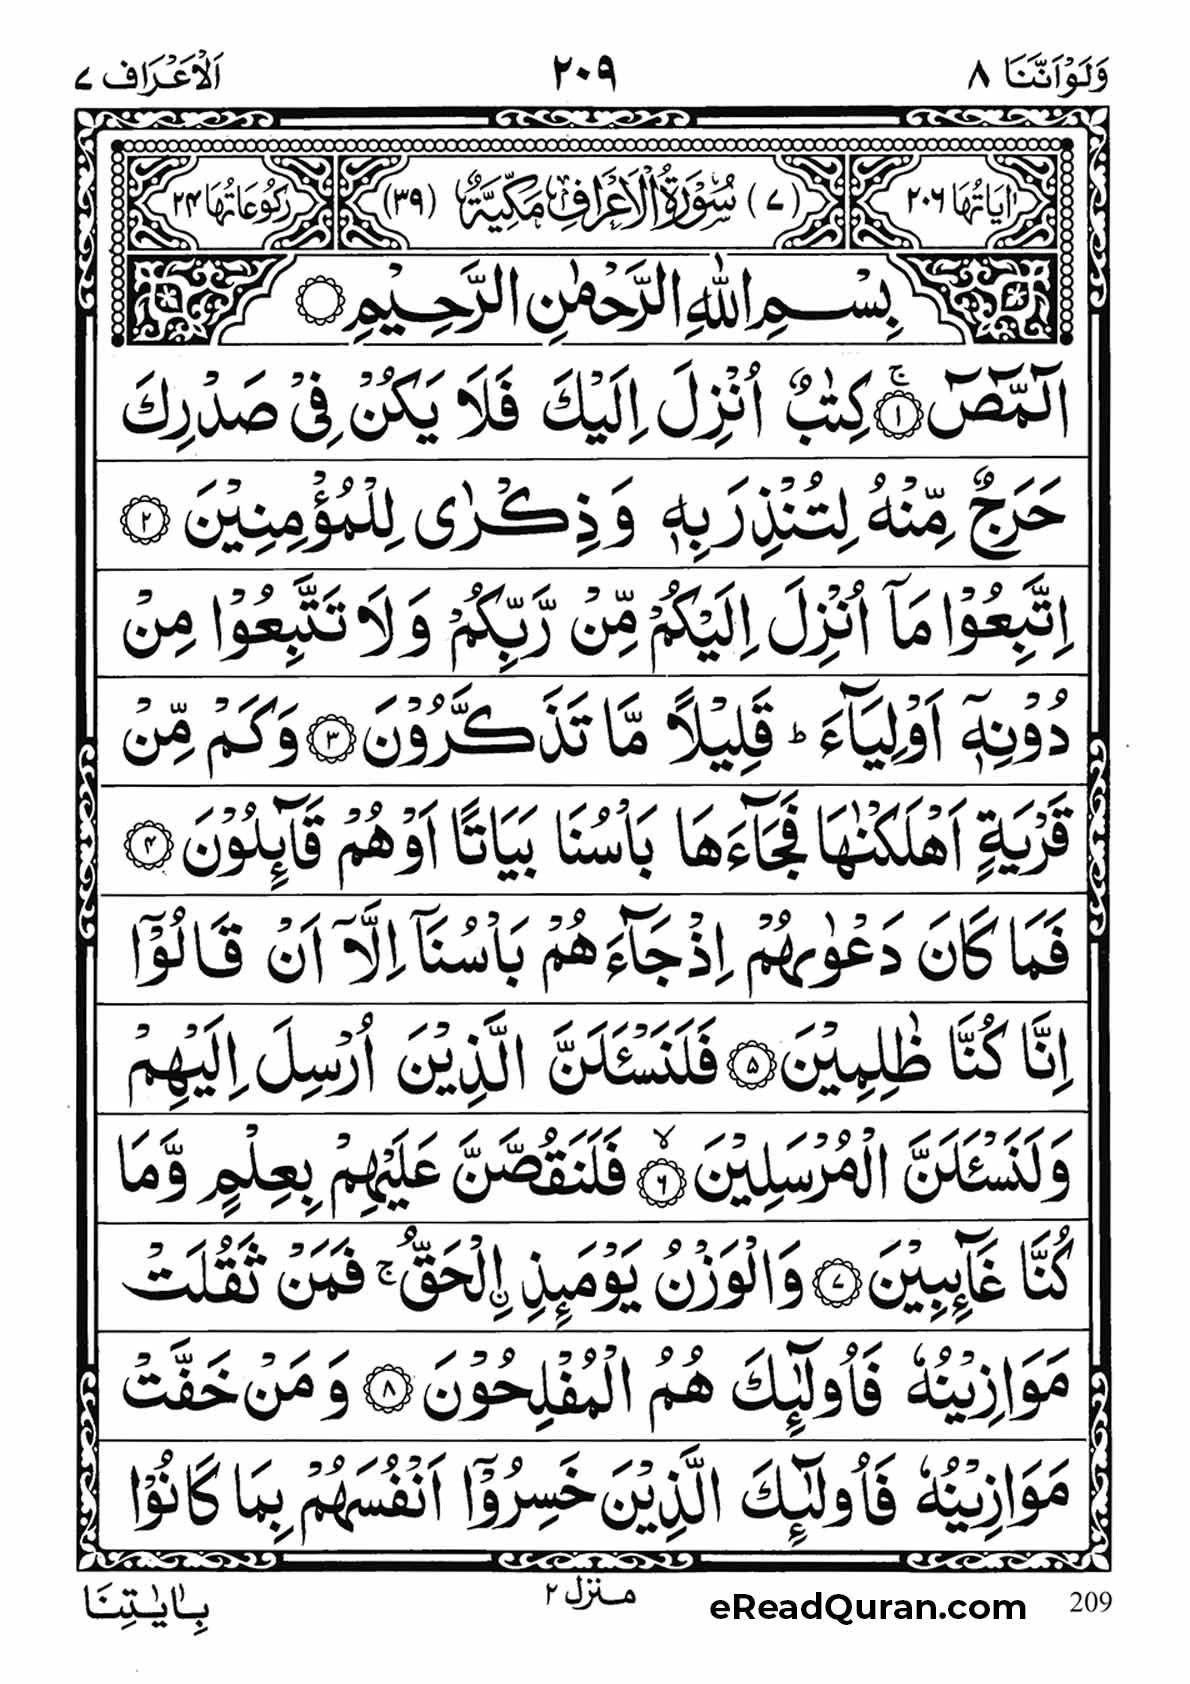 وَلَوْاَنَّنَا ٨
٢٠٩
اَلْاَعْرَاف ٧
اٰيَاتُهَا ٢٠٦
(٧) سُوْرَةُ الْاَعْرَافِ مَكِّيَّةٌ (٣٩)
رُكُوْعَاتُهَا ٢٤
بِسْمِ اللّٰهِ الرَّحْمٰنِ الرَّحِيْمِ
الٓمّٓصٓ ۚ ﴿١﴾ كِتٰبٌ اُنْزِلَ اِلَيْكَ فَلَا يَكُنْ فِىْ صَدْرِكَ
حَرَجٌ مِّنْهُ لِتُنْذِرَ بِهٖ وَ ذِكْرٰى لِلْمُؤْمِنِيْنَ ﴿٢﴾
اِتَّبِعُوْا مَاۤ اُنْزِلَ اِلَيْكُمْ مِّنْ رَّبِّكُمْ وَ لَا تَتَّبِعُوْا مِنْ
دُوْنِهٖۤ اَوْلِيَآءَ ؕ قَلِيْلًا مَّا تَذَكَّرُوْنَ ﴿٣﴾ وَكَمْ مِّنْ
قَرْيَةٍ اَهْلَكْنٰهَا فَجَآءَهَا بَاْسُنَا بَيَاتًا اَوْ هُمْ قَآئِلُوْنَ ﴿٤﴾
فَمَا كَانَ دَعْوٰىهُمْ اِذْ جَآءَهُمْ بَاْسُنَاۤ اِلَّاۤ اَنْ قَالُوْۤا
اِنَّا كُنَّا ظٰلِمِيْنَ ﴿٥﴾ فَلَنَسْـَٔلَنَّ الَّذِيْنَ اُرْسِلَ اِلَيْهِمْ
وَلَنَسْـَٔلَنَّ الْمُرْسَلِيْنَ ۙ ﴿٦﴾ فَلَنَقُصَّنَّ عَلَيْهِمْ بِعِلْمٍ وَّمَا
كُنَّا غَآئِبِيْنَ ﴿٧﴾ وَالْوَزْنُ يَوْمَئِذِ ِۨالْحَقُّ ۚ فَمَنْ ثَقُلَتْ
مَوَازِيْنُهٗ فَاُولٰٓئِكَ هُمُ الْمُفْلِحُوْنَ ﴿٨﴾ وَ مَنْ خَفَّتْ
مَوَازِيْنُهٗ فَاُولٰٓئِكَ الَّذِيْنَ خَسِرُوْۤا اَنْفُسَهُمْ بِمَا كَانُوْا
بِاٰيٰتِنَا
منزل ٢
eReadQuran.com
209